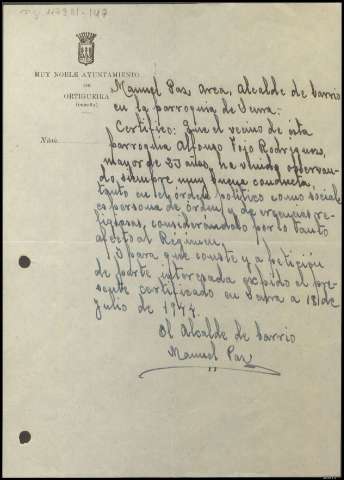 MUY NOBLE AYUNTAMIENTO
DE
ORTIGUEIRA
(CORUÑA)
Núm.
Manuel Paz Area, Alcalde de barrio
en la parroquia de
Certifico: Que el vecino de ésta
parroquia Alfonso Tojo Rodriguez,
mayor de 23 años, ha venido observan-
do siempre muy buena conducta,
tanto en el órden politico como social
es persona de órden y de creencias re-
ligiosas, considerándolo por lo tanto
afecto al Régimen.
Y para que conste y a petición
de parte interesada expido el pre-
sente certificado en a 18 de
Julio de 1944.
El Alcalde de barrio
Manuel Paz